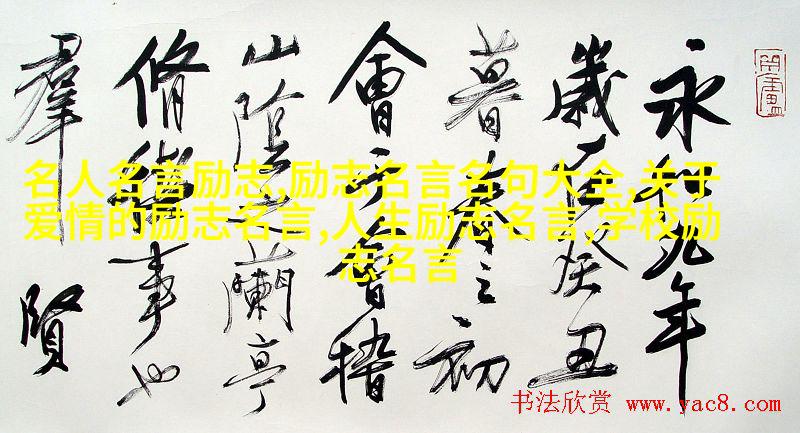 永和九年
歲在癸丑
暮春之初
會于會稽
山陰之蘭亭
脩稧事也
羣賢
名人名言励志,励志名言名句大全,关于
爱情的励志名言,人生励志名言,学校励
志名言
书法欣赏 www.yac8.com